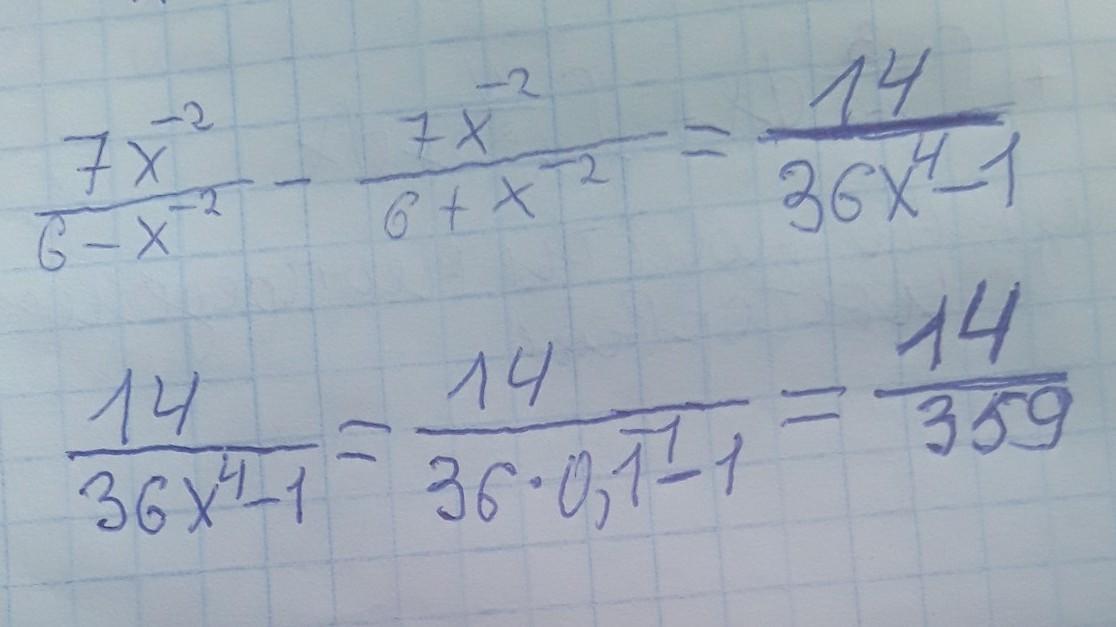 \frac{7x^{-2}}{6-x^{-2}} - \frac{7x^{-2}}{6+x^{-2}} = \frac{14}{36x^4-1}
\frac{14}{36x^4-1} = \frac{14}{36 \cdot 0,1^{-1}-1} = \frac{14}{359}